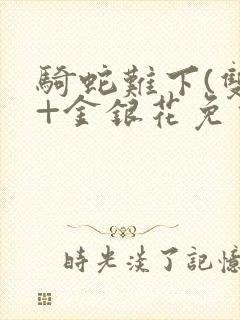 騎蛇難下(雙
+金銀花免
時光淡了記憶